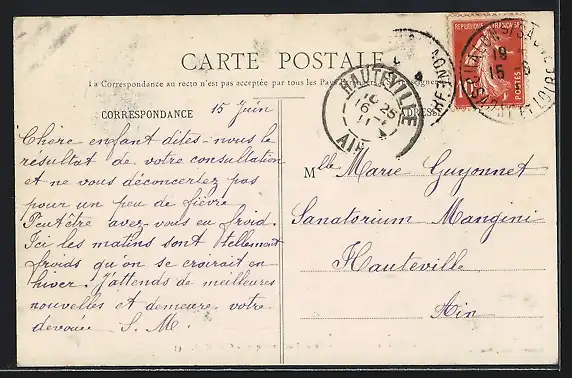 CARTE POSTALE
La Correspondance au recto n'est pas acceptée par tous les Pays
CORRESPONDANCE
15 Juin
Chère enfant dites-nous le
résultat de votre consultation
et ne vous déconcertez pas
pour un peu de fièvre
Peut être avez vous eu froid.
Ici les matins sont tellement
froids qu'on se croirait en
hiver. J'attends de meilleures
nouvelles et demeure votre
dévouée S. M.
HAUTEVILLE
16
AIN
ADRESSE
POSTES
Mlle Marie Guyonnet
Sanatorium Mangini
Hauteville
Ain